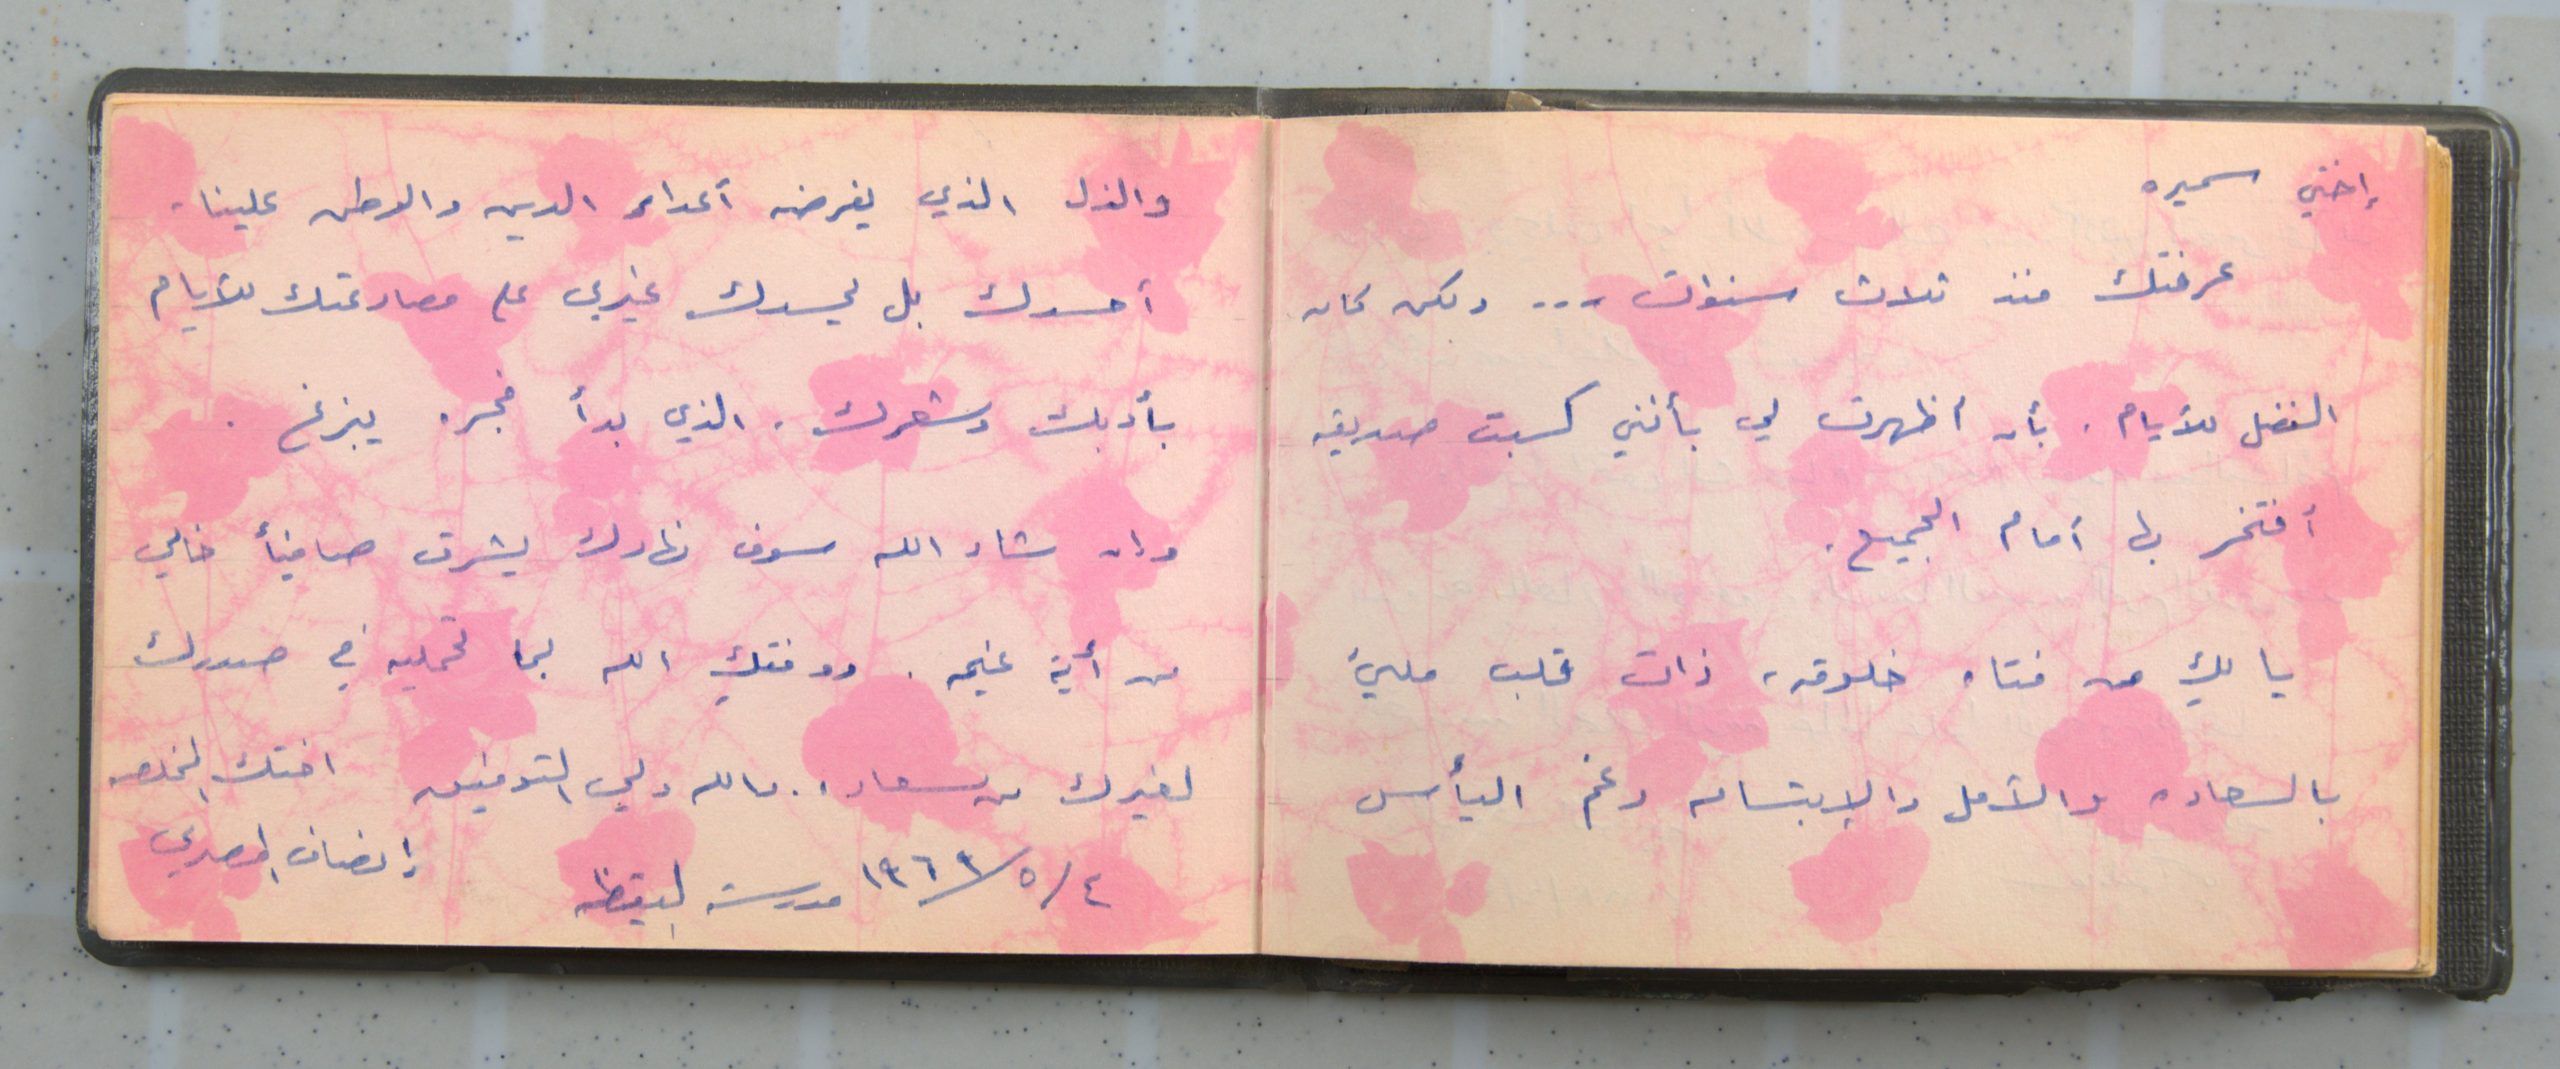 إختي سميره
عرفتك منذ ثلاث سنوات ... ولكن كان
الفضل للأيام . بأن أظهرت لي بأنني كسبت صديقه
أفتخر بها أمام الجميع .
يا لكِ من فتاه خلوقه ، ذات قلب مليئ
بالسعاده والأمل والإبتسامه رغم اليأس
والذل الذي يفرضه أعداء الدين والوطن علينا .
أحسدك بل يحسدك غيري على مصارعتك للأيام
بأدبك وشعرك . الذي بدأ فجره يبزغ .
وان شاء الله سوف نهارك يشرق صافيأ خالي
من أية غيمه . ووفقكِ الله لما تحمليه في صدرك
لغيرك من سعاده . والله ولي التوفيق اختك المخلصه
إنصاف المصري
٤/٥/١٩٦٩ مدرسة اليقظه